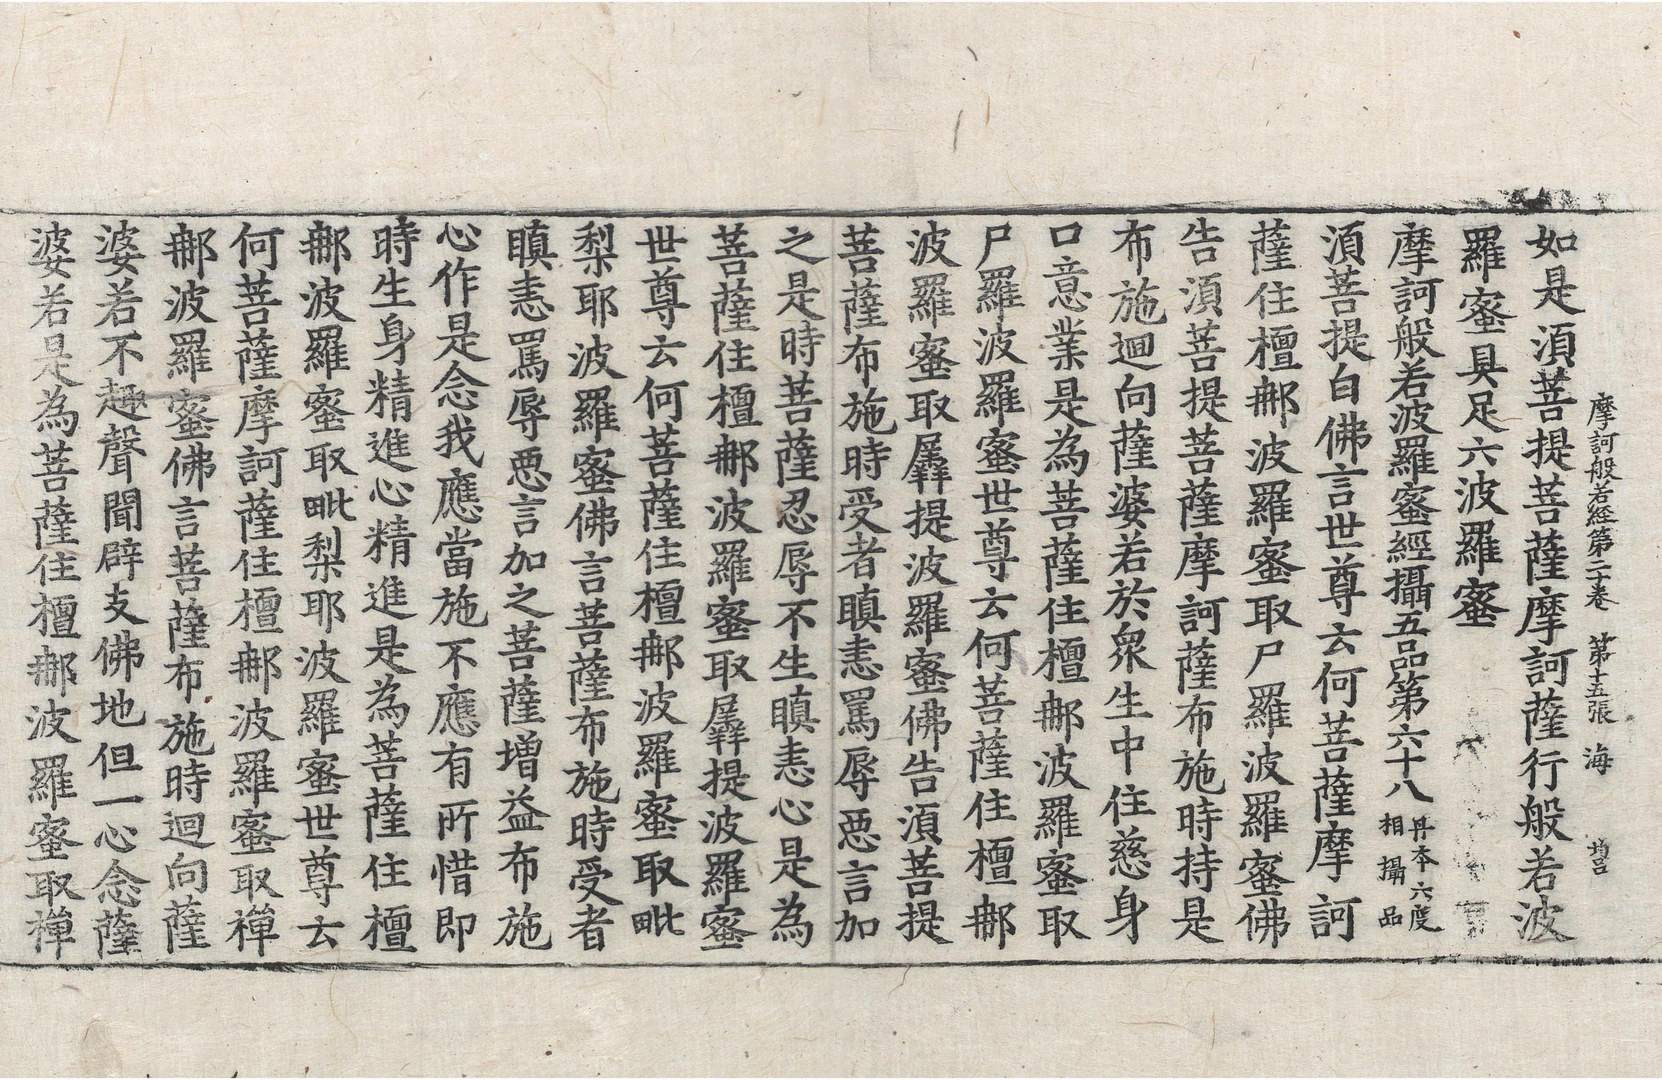 摩訶般若經第二十卷　第十五張　海
如是須菩提菩薩摩訶薩行般若波
羅蜜具足六波羅蜜
摩訶般若波羅蜜經攝五品第六十八
丹本六度
相攝品
須菩提白佛言世尊云何菩薩摩訶
薩住檀那波羅蜜取尸羅波羅蜜佛
告須菩提菩薩摩訶薩布施時持是
布施迴向薩婆若於衆生中住慈身
口意業是為菩薩住檀那波羅蜜取
尸羅波羅蜜世尊云何菩薩住檀那
波羅蜜取羼提波羅蜜佛告須菩提
菩薩布施時受者瞋恚罵辱惡言加
之是時菩薩忍辱不生瞋恚心是為
菩薩住檀那波羅蜜取羼提波羅蜜
世尊云何菩薩住檀那波羅蜜取毗
梨耶波羅蜜佛言菩薩布施時受者
瞋恚罵辱惡言加之菩薩增益布施
心作是念我應當施不應有所惜即
時生身精進心精進是為菩薩住檀
那波羅蜜取毗梨耶波羅蜜世尊云
何菩薩摩訶薩住檀那波羅蜜取禪
那波羅蜜佛言菩薩布施時迴向薩
婆若不趣聲聞辟支佛地但一心念薩
婆若是為菩薩住檀那波羅蜜取禪